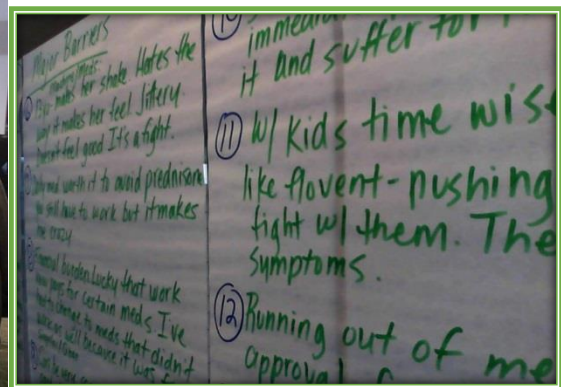 Major Barriers
makes her shake Hates the
way it makes her feel jittery.
Doesn't feel good It's a fight.
med worth it to avoid prednisone
still have to work but it makes
me crazy
burden Lucky that work
pays for certain meds. I've
to change to meds that didn't
work as well because it was
10
immedia
it and suffer for
11 w/ kids time wis
like flovent-pushing
fight w/ them. The
symptoms.
12 Running out of me
approval